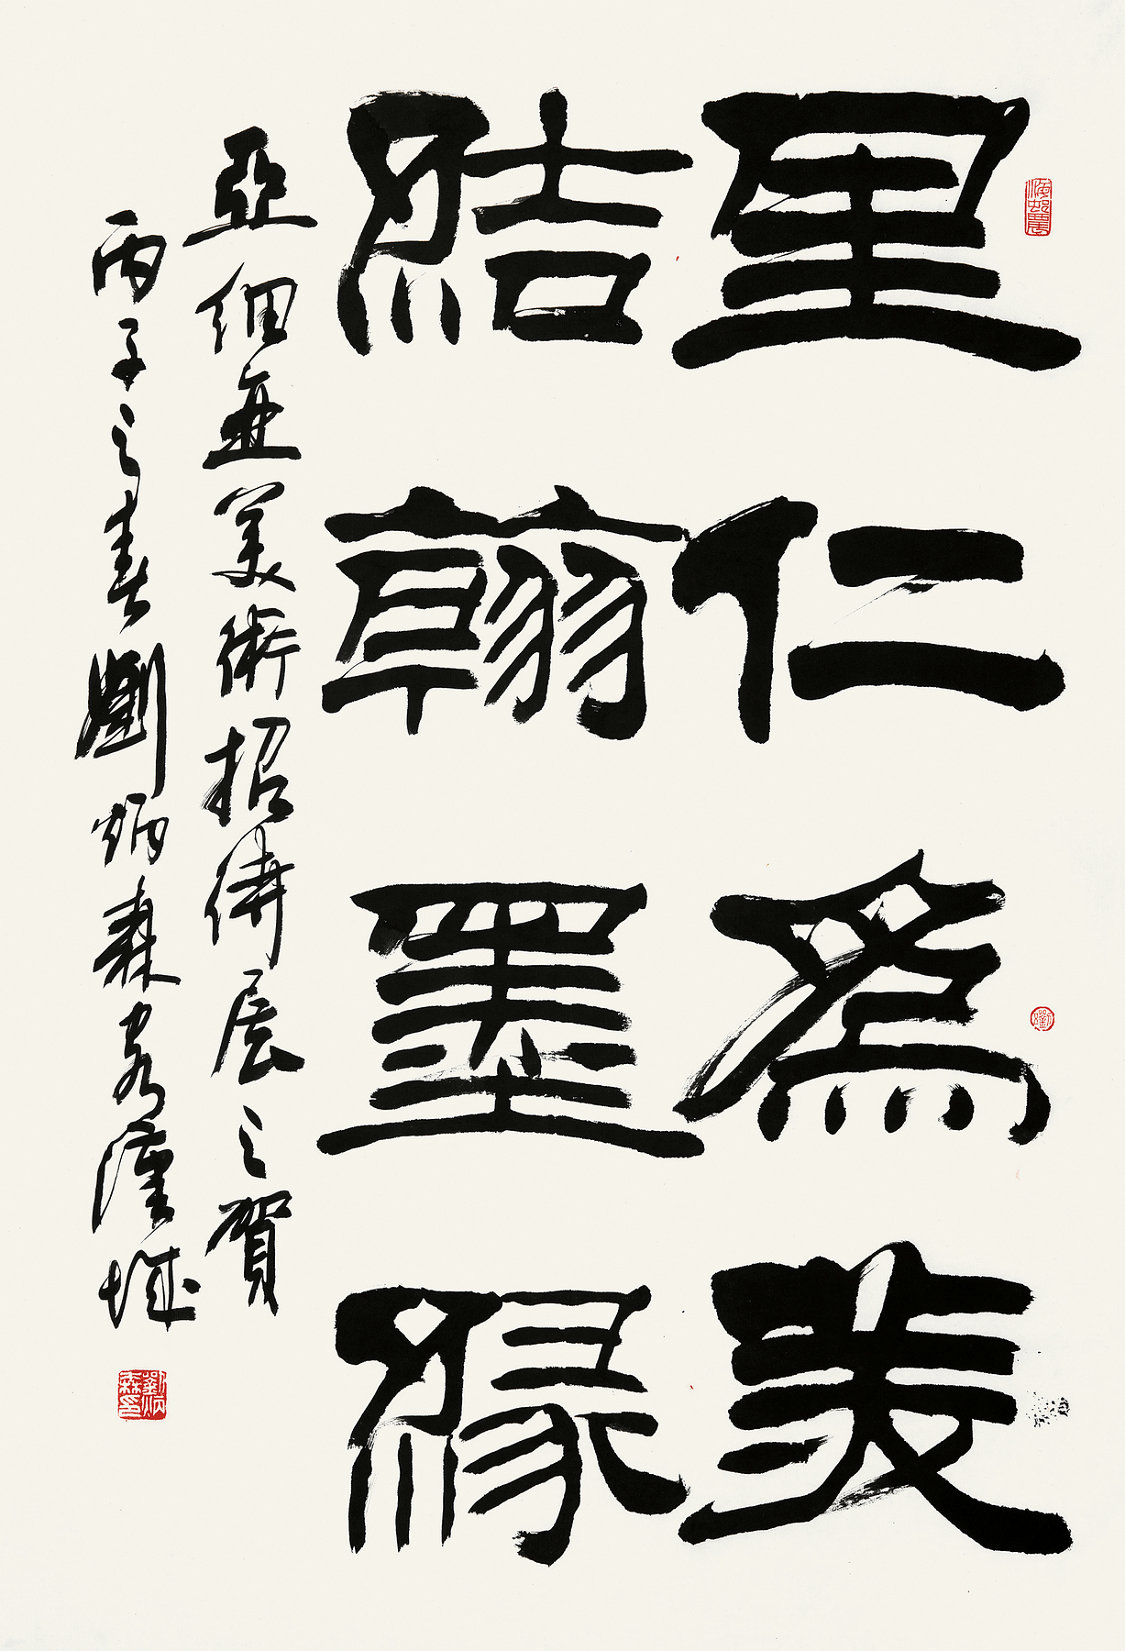 里仁為美
結翰墨緣
亞細亞美術招待展之賀
丙子之春劉炳森客漢城
劉炳森印